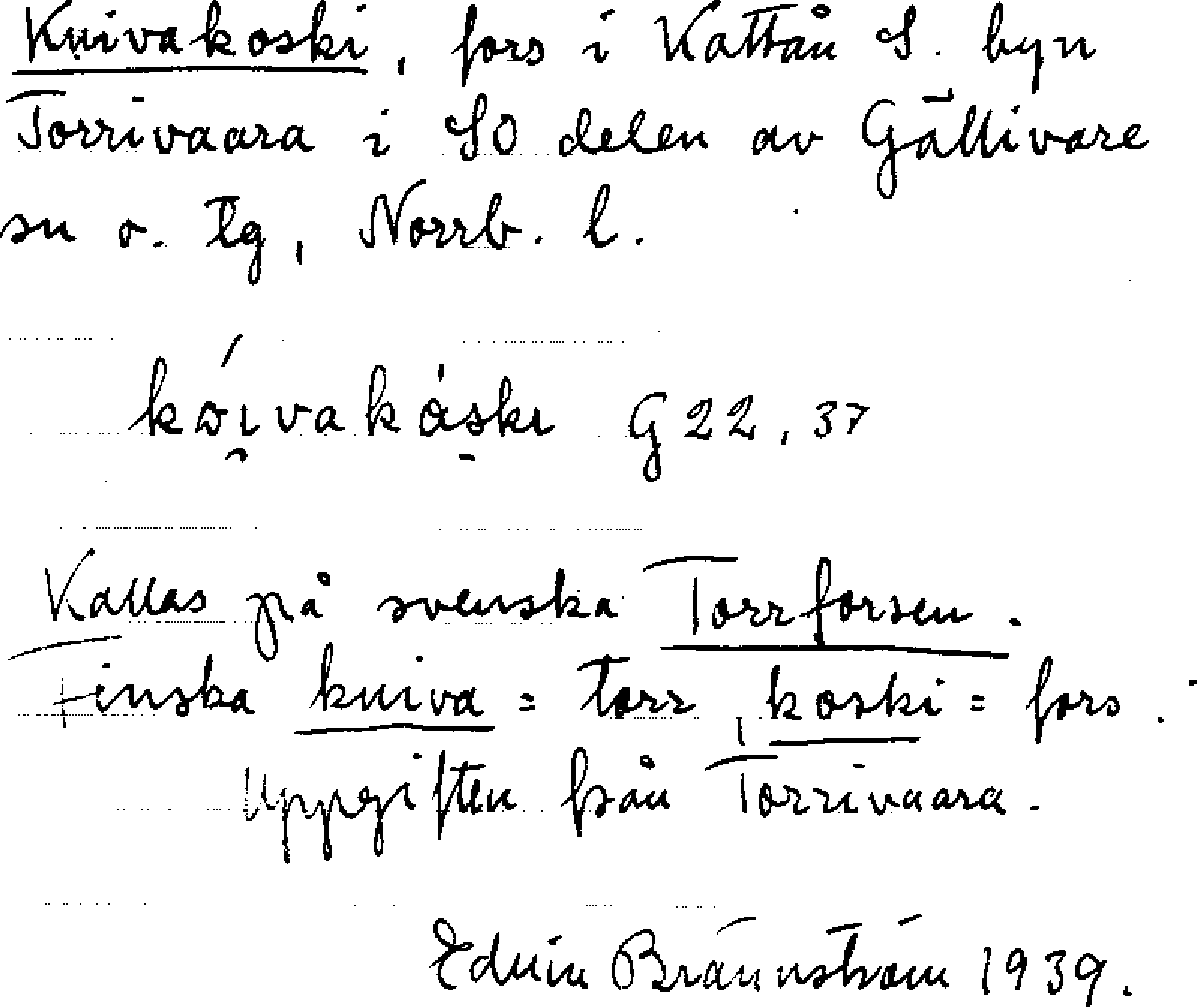 Kuivakoski, fors i Kattån S. byn
Torrivaara i SO delen av Gällivare
sn o. tg, Norrb. l.
G 22, 37
Kallas på svenska Torrforsen.
Finska kuiva = torr, koski = fors.
Uppgiften från Torrivaara.
Edvin Brännström 1939.